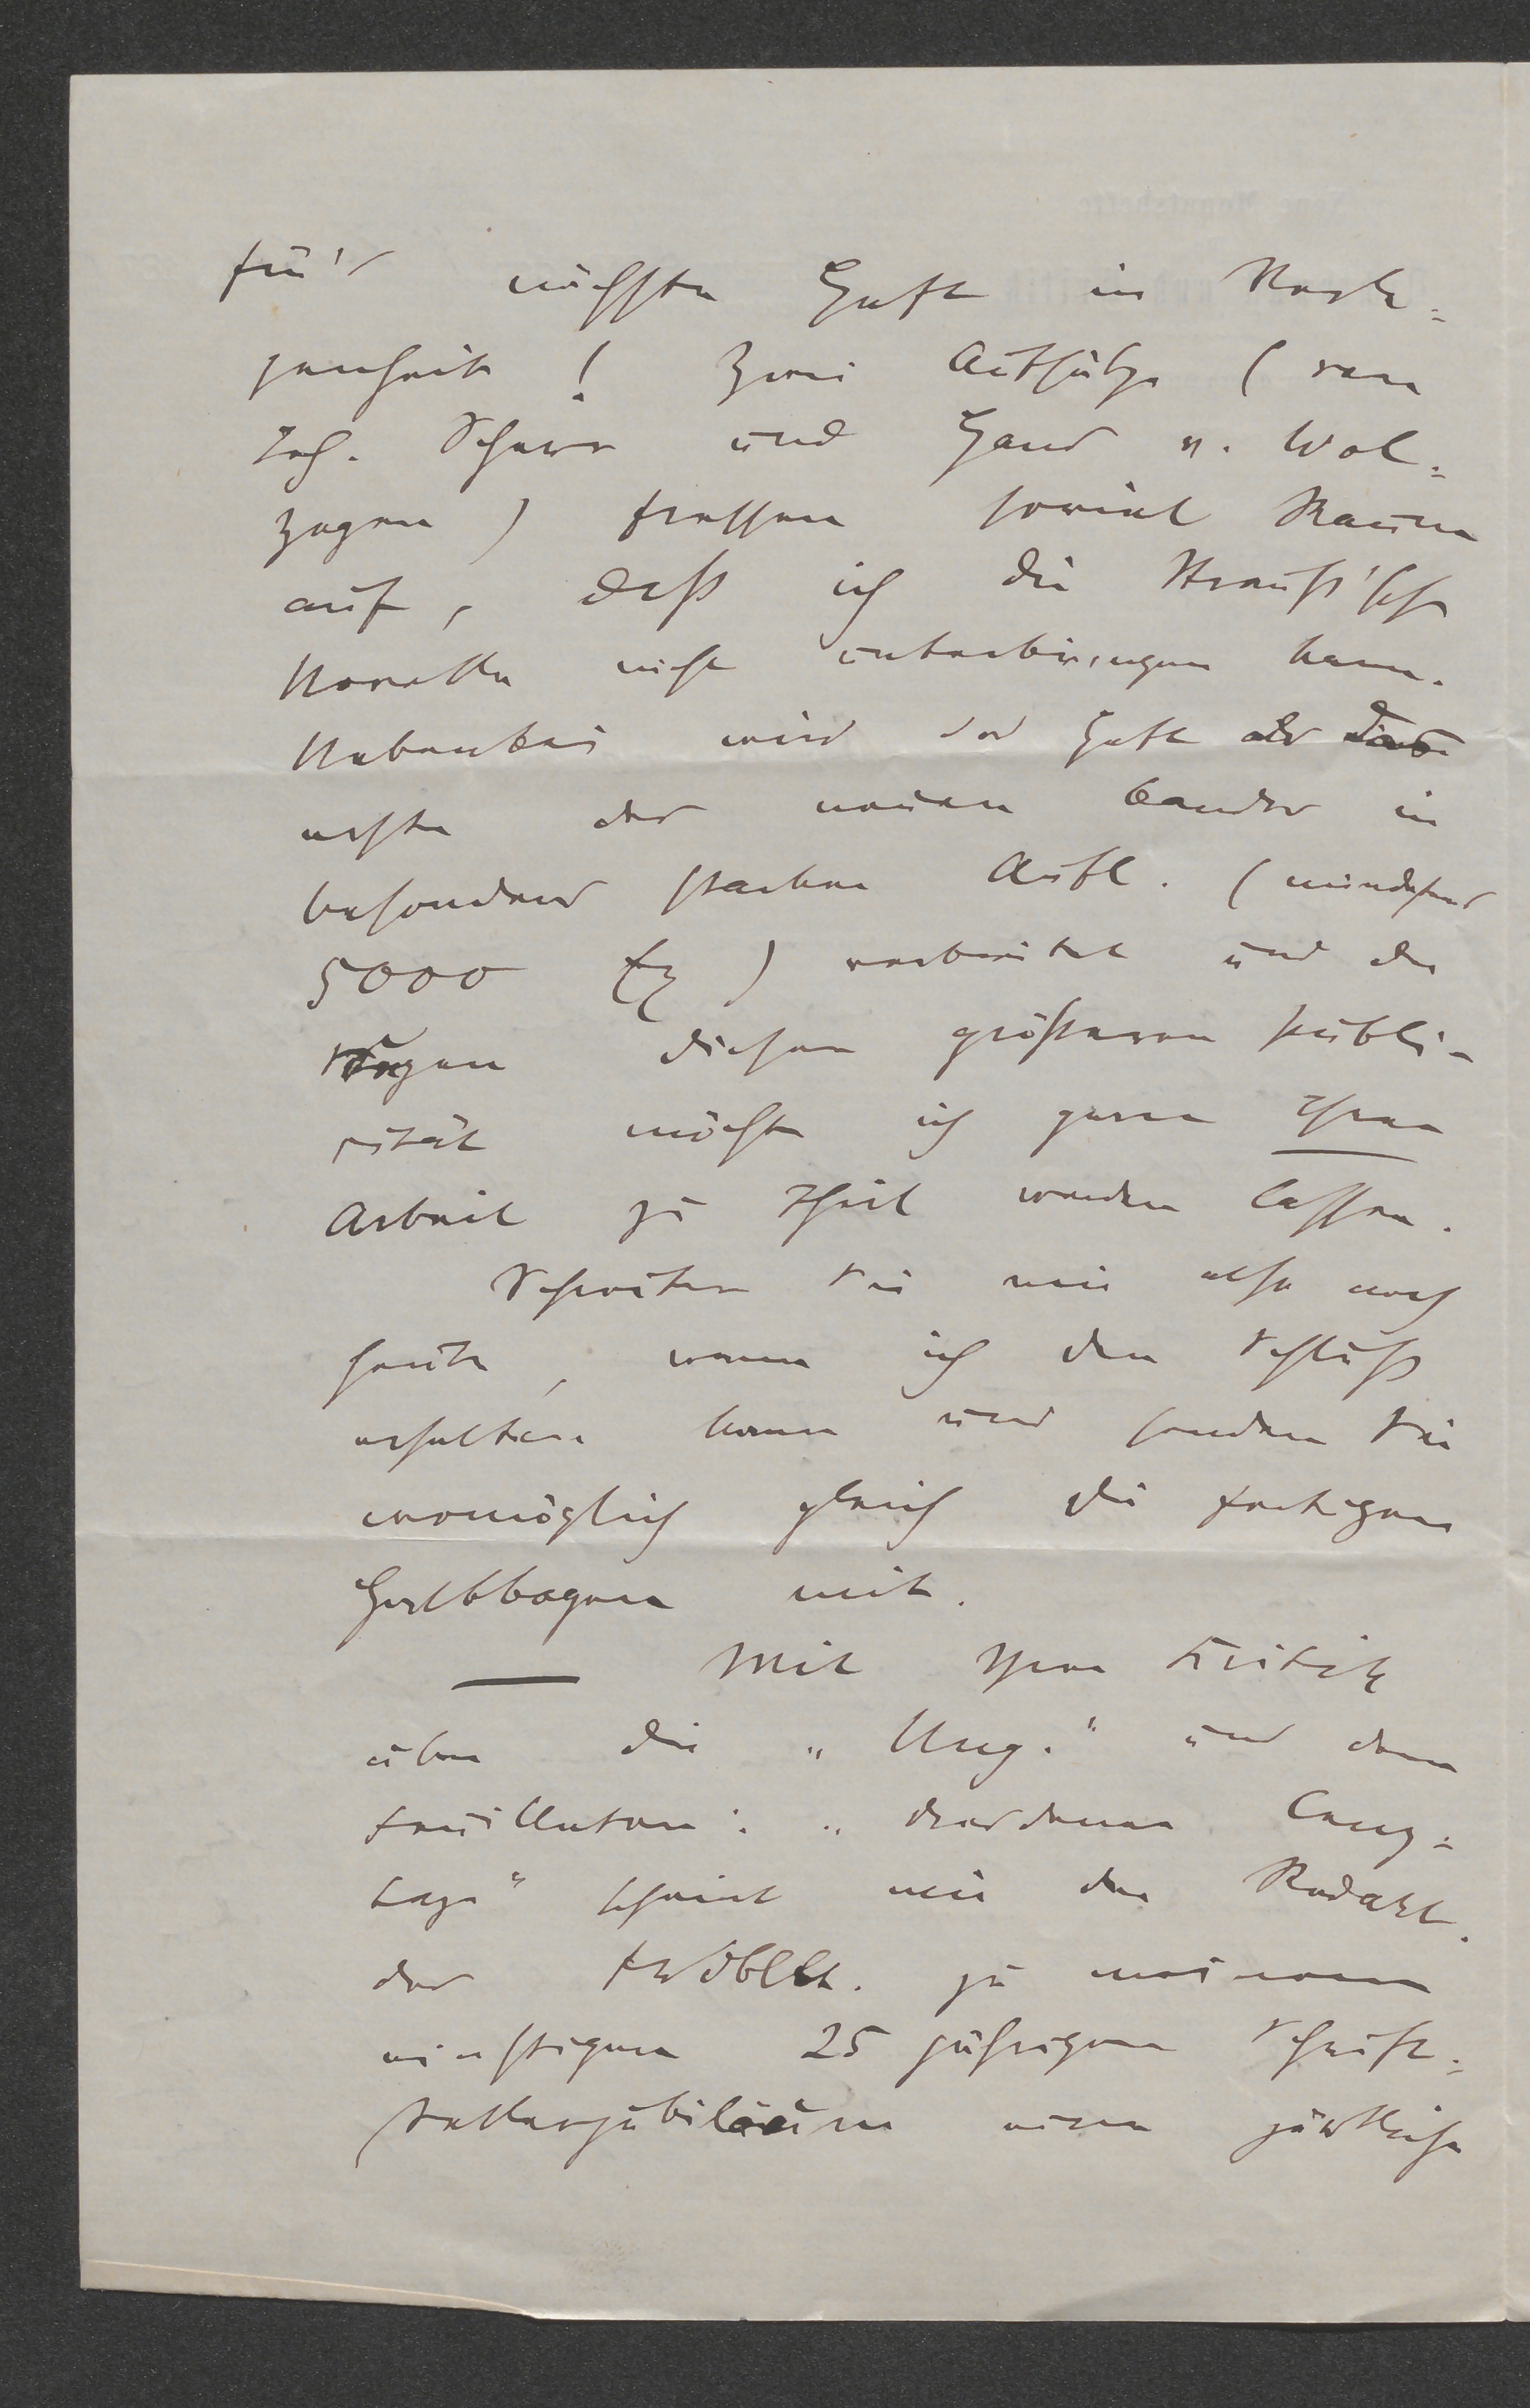 für's nächste Heft in Verle=
genheit! Zwei Aufsätze (von
Joh. Scherr und Hans v. Wol=
zogen) fressen soviel Raum
auf, daß ich die Strauß'sche
Novelle nicht unterbringen kann.
Nebenbei wird das Heft als
erste des neuen Bandes in
besonders starker Aufl. (mindestens
5000 Ex) verbreitet und
wegen dieser größeren Publi-
cität möchte ich gerne Ihrer
Arbeit zu Theil werden lassen.
Schreiben Sie mir also noch
heute, wann ich den Schluß
erhalten kann und senden Sie
womöglich gleich die fertigen
Halbbogen mit.
— Mit Ihrer Kritik
über die „Ung." und dem
Feuilleton: „Dresdener
tage" scheint mir der Redakt.
der zu meinem
einstigen 25 jährigen Schrift=
stellerjubiläum eine